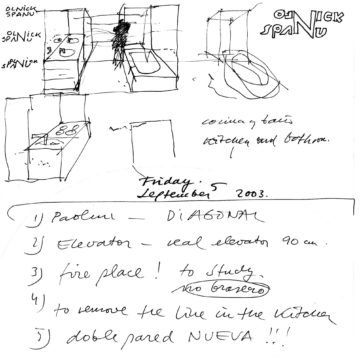 OLNICK
SPANU
OLNICK
SPANU
SPANICK
OLNICK
SPANU
cocina y baño
kitchen and bathroom.
Friday.
September 5 2003.
1) Paolini — DIAGONAL
2) Elevator — real elevator 90 cm.
3) fire place! to study.
no brasero
4) to remove the line in the kitchen
5) doble pared NUEVA !!!